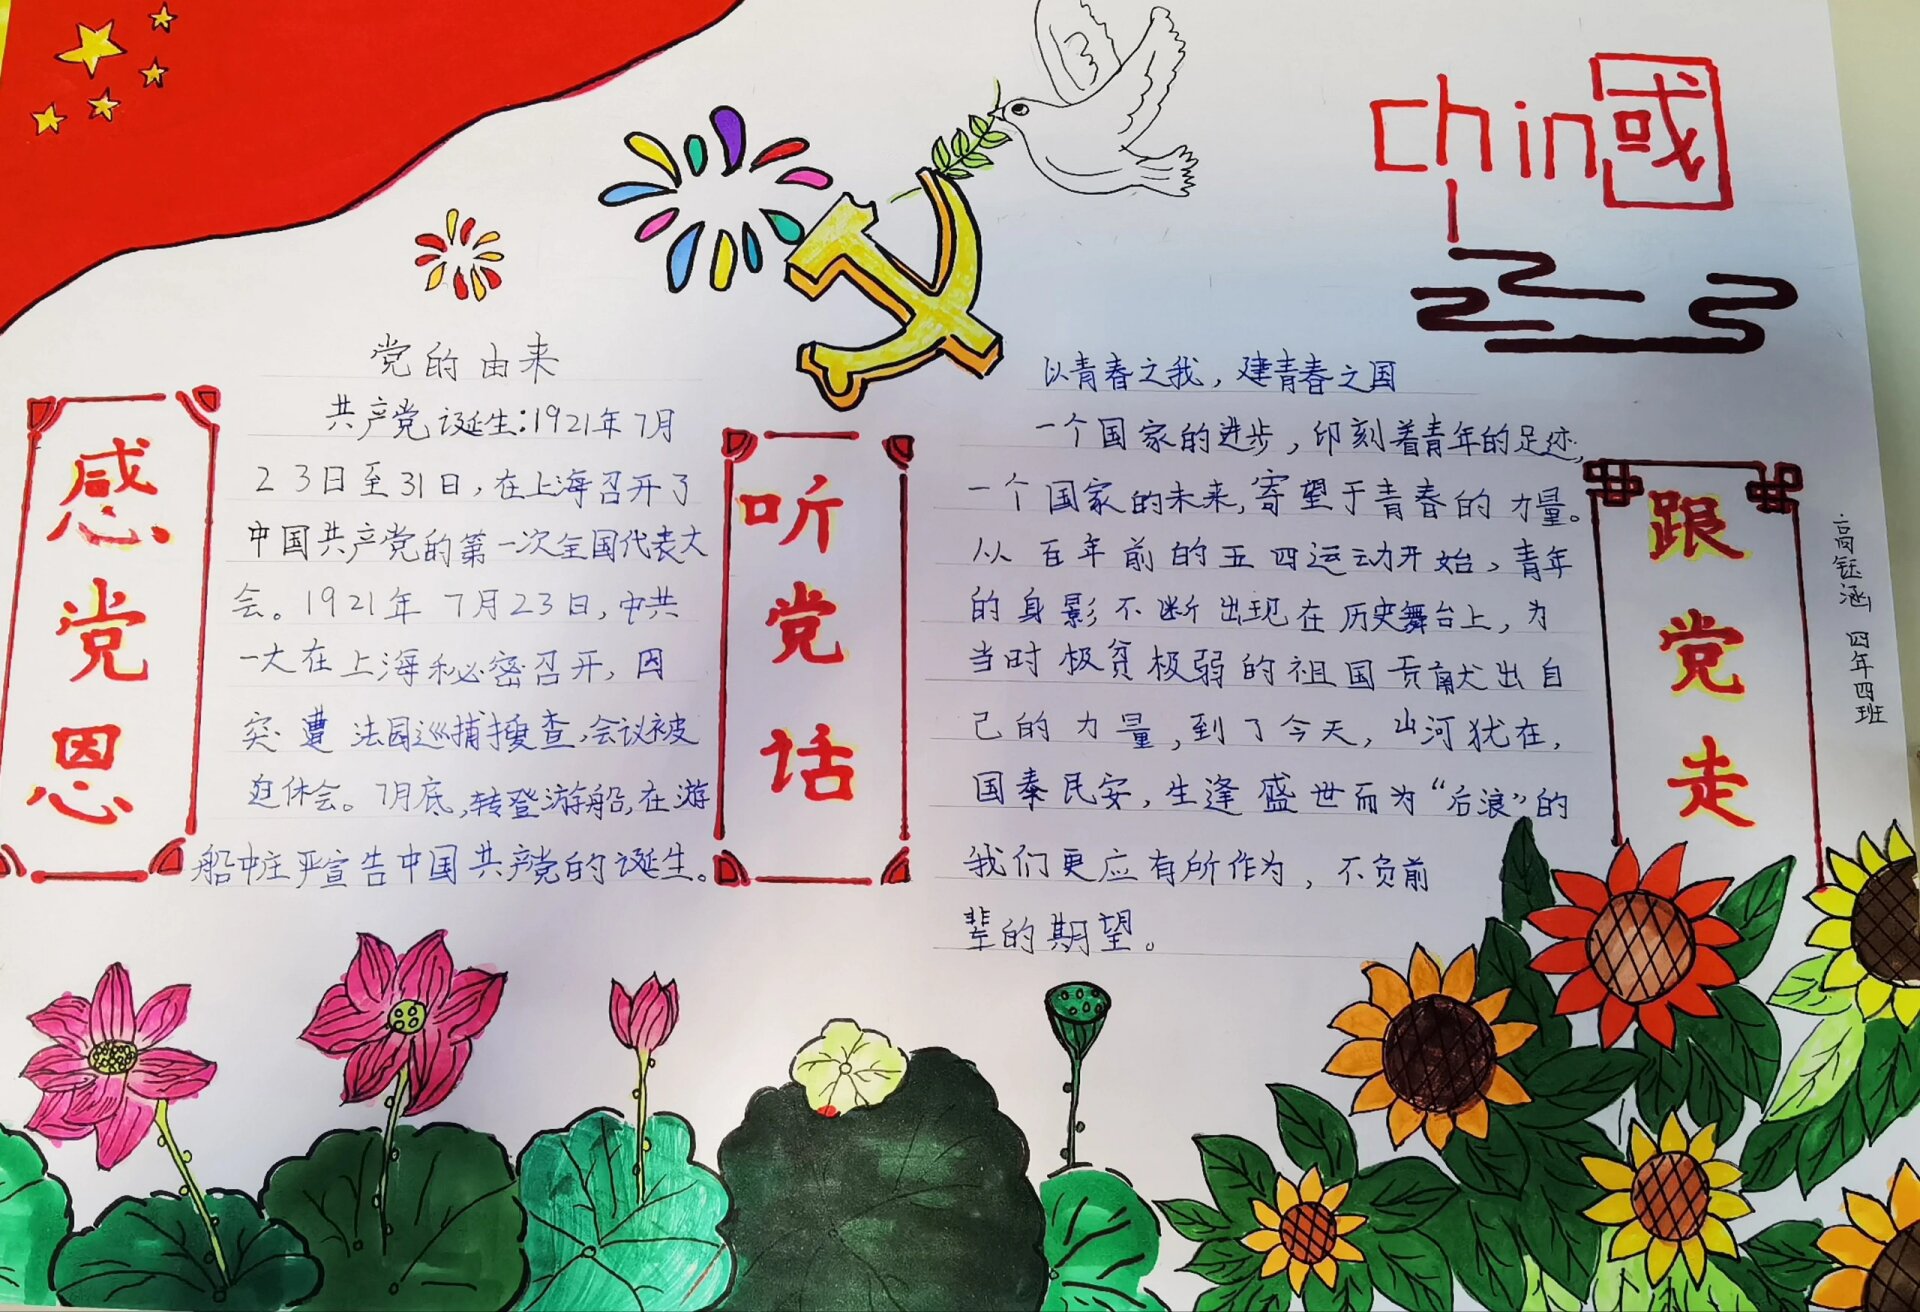 chin國
党的由来
共产党诞生:1921年7月
23日至31日,在上海召开了
中国共产党的第一次全国代表大
会。1921年7月23日,中共
一大在上海秘密召开,因
突遭法园巡捕搜查,会议被
迫休会。7月底,转登游船,在游
船中庄严宣告中国共产党的诞生。
感党恩
听党话
以青春之我,建青春之国
一个国家的进步,印刻着青年的足迹,
一个国家的未来,寄望于青春的力量。
从百年前的五四运动开始,青年
的身影不断出现在历史舞台上,为
当时极贫极弱的祖国贡献出自
己的力量,到了今天,山河犹在,
国泰民安,生逢盛世而为“后浪”的
我们更应有所作为,不负前
辈的期望。
跟党走
高钰涵 四年四班